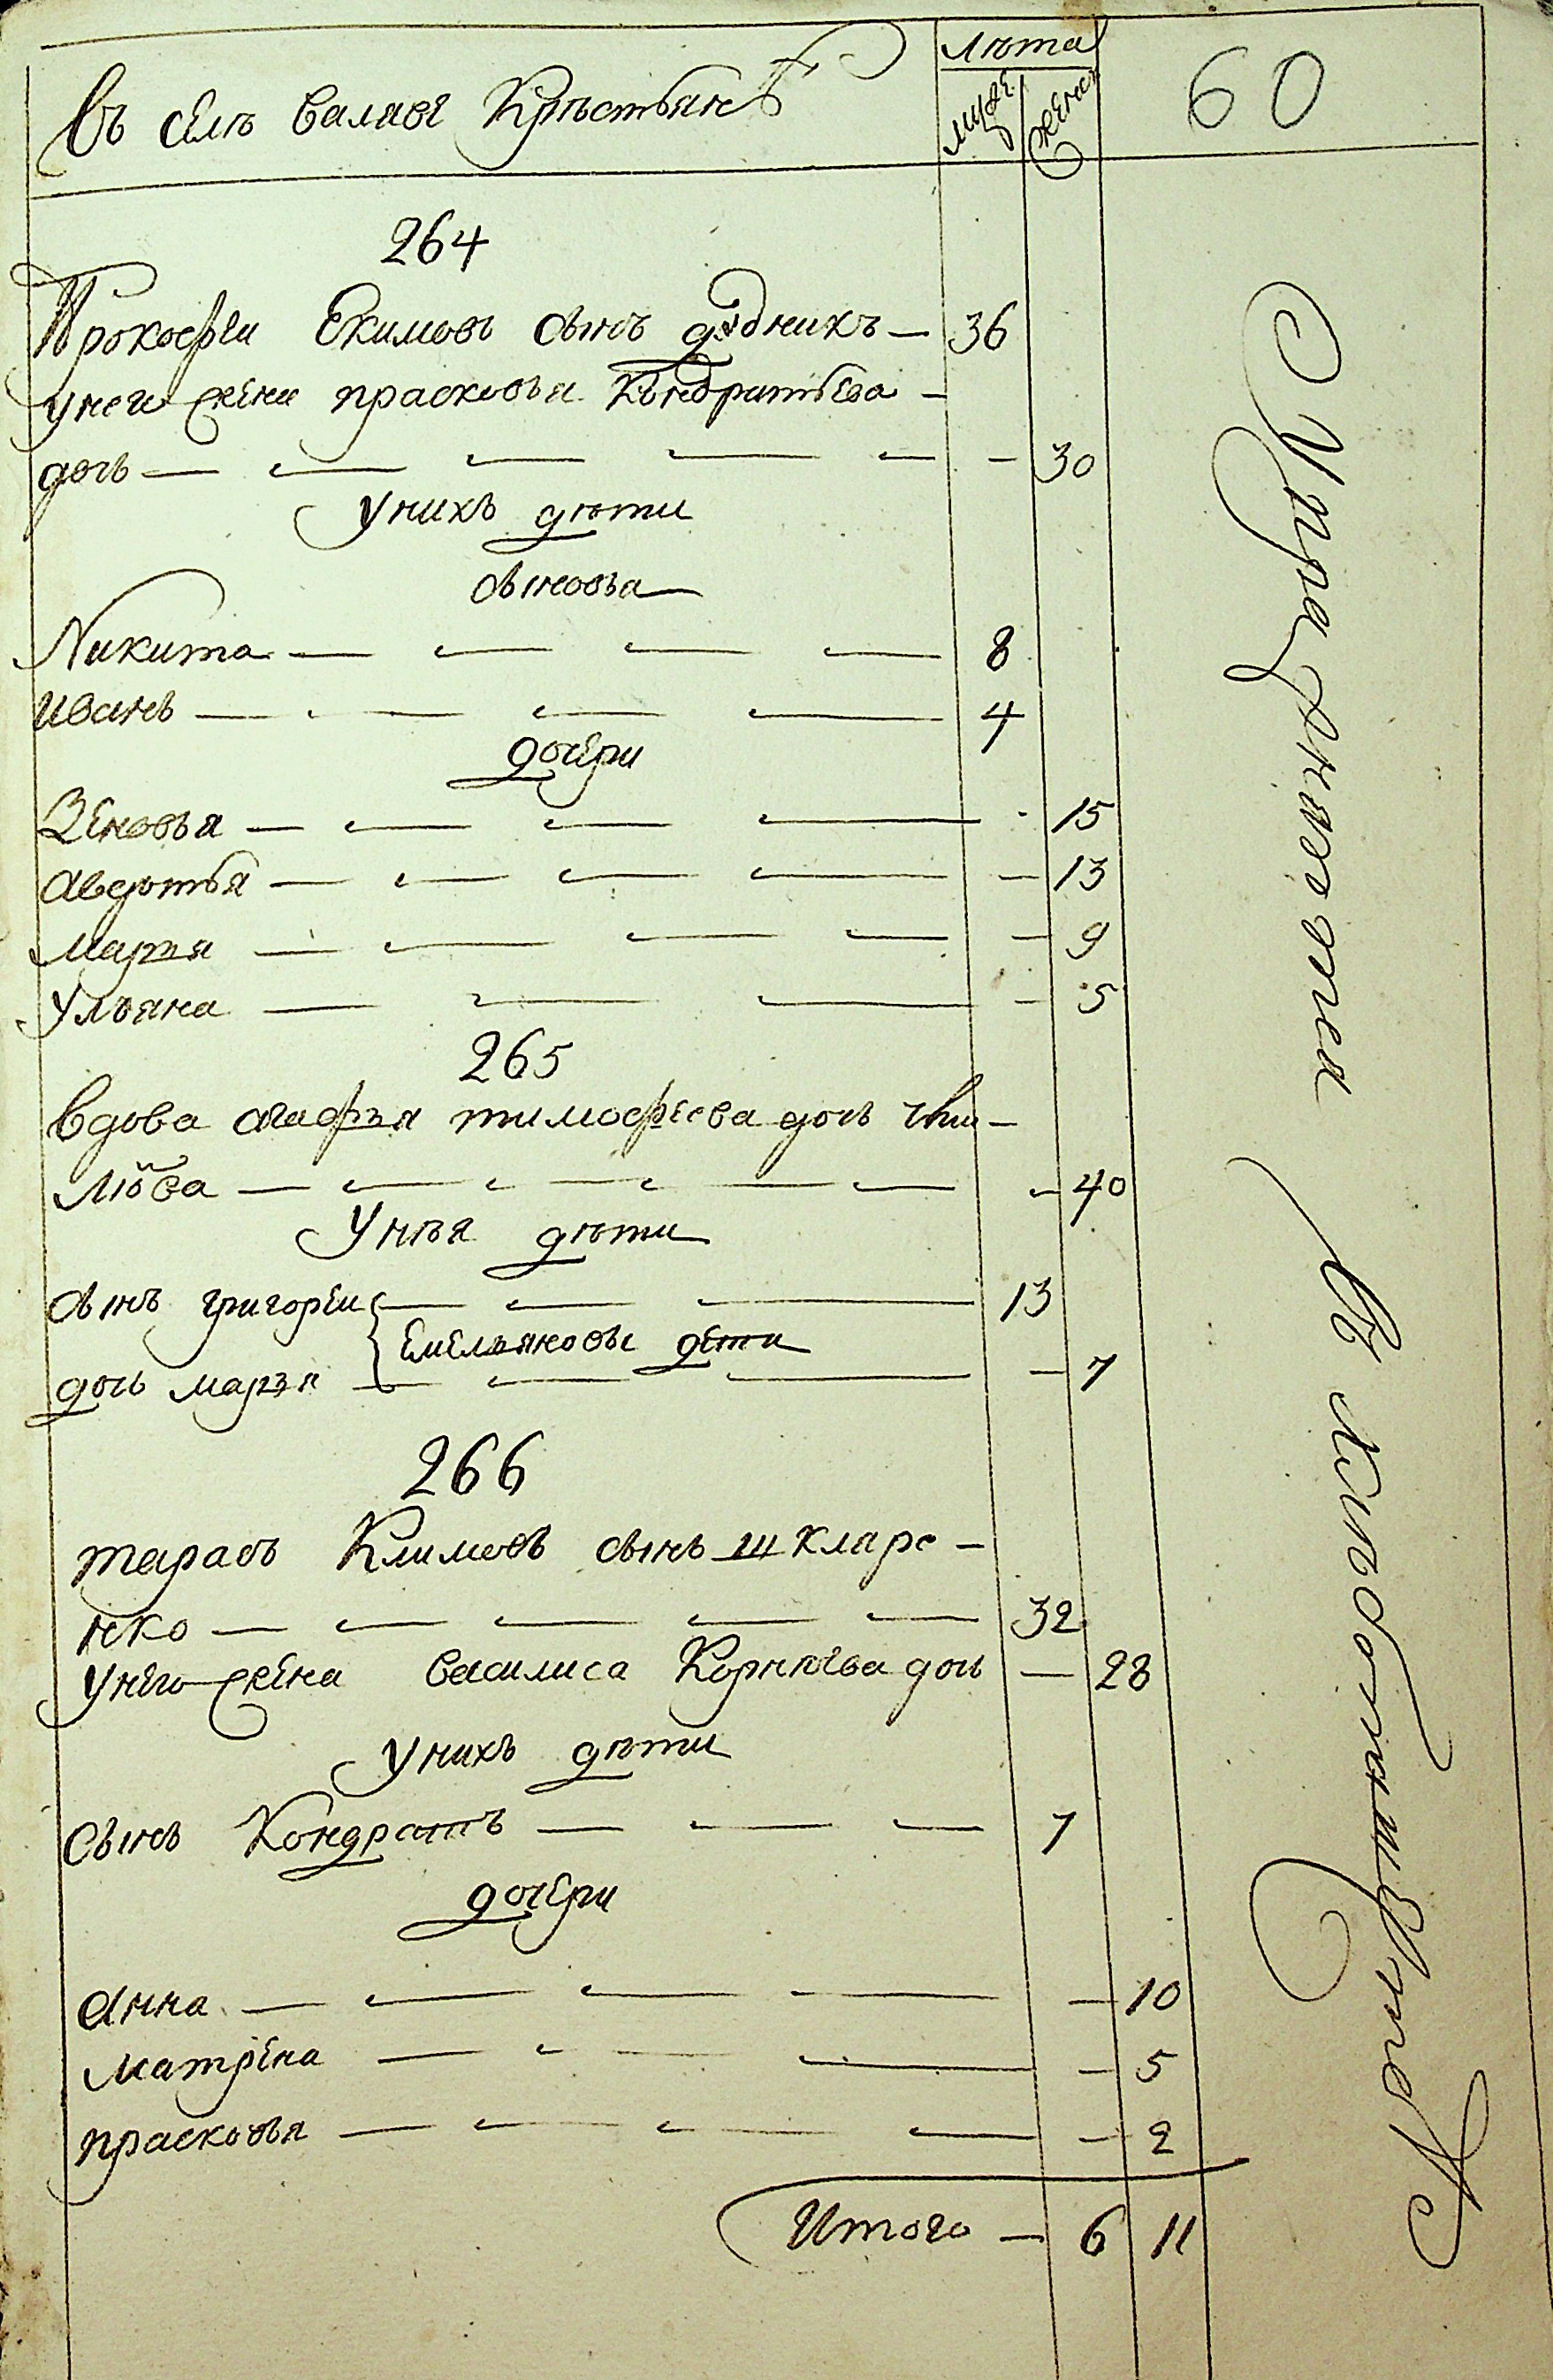 Въ селѣ валяве Крѣстьянъ
лѣта
муже
жене
60
264
Прокофеи Екимовъ сынъ дѣдникъ — 36
унего жена прасковья Кондратьева —
дочь — 30
Унихъ дѣти
сыновья
Никита — 8
иванъ — 4
дочери
Зеновья — 15
авдотья — 13
марья — 9
Ульяна — 5
265
Вдова агафья тимофеева дочь
— 40
Унѣя дѣти
сынъ григореи — 13
Емельяновы дети
дочь марья — 7
266
тарасъ Климовъ сынъ шкларе —
нко — 32
Унего жена василиса Корнѣева дочь — 28
Унихъ дѣти
Сынъ Кондратъ — 7
дочери
анна — 10
матрена — 5
прасковья — 2
Итого — 6 11